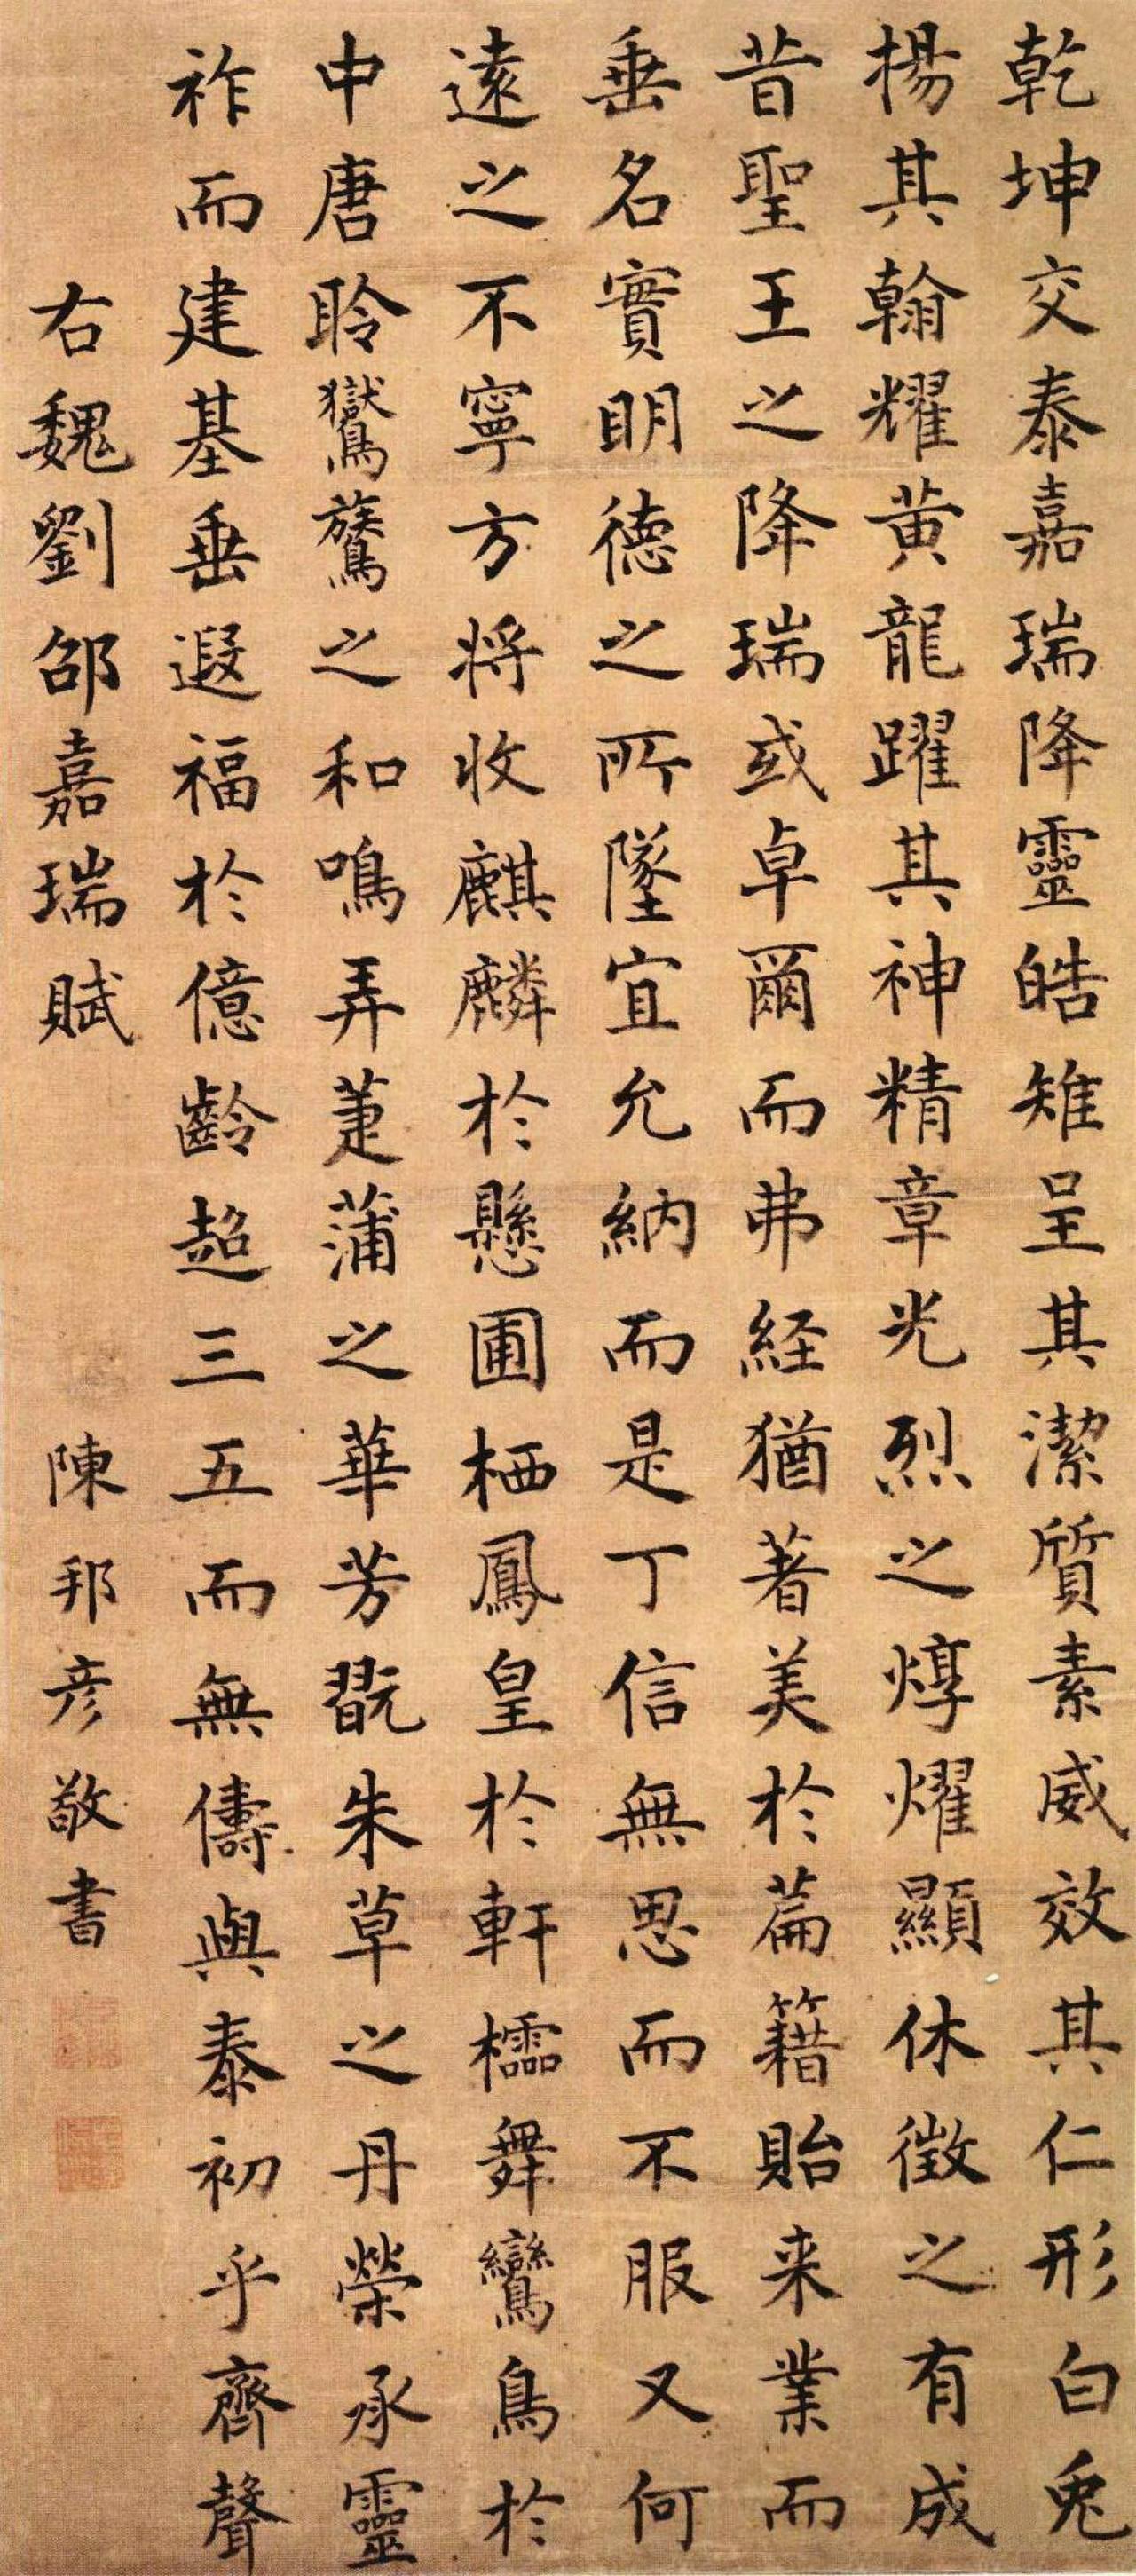 乾坤交泰嘉瑞降靈皓雉呈其潔質素威效其仁形白兎
揚其翰耀黄龍躍其神精章光烈之焞燿顯休徵之有成
昔聖王之降瑞或卓爾而弗経猶著美於篇籍貽来業而
垂名實明德之所墜宜允納而是丁信無思而不服又何
遠之不寧方将收麒麟於懸圃栖鳳皇於軒櫺舞鸞鳥於
中唐聆鸑鷟之和鳴弄萐蒲之華芳翫朱草之丹榮承靈
祚而建基垂遐福於億齡超三五而無儔與泰初乎齊聲
右魏劉邵嘉瑞賦
陳邦彦敬書